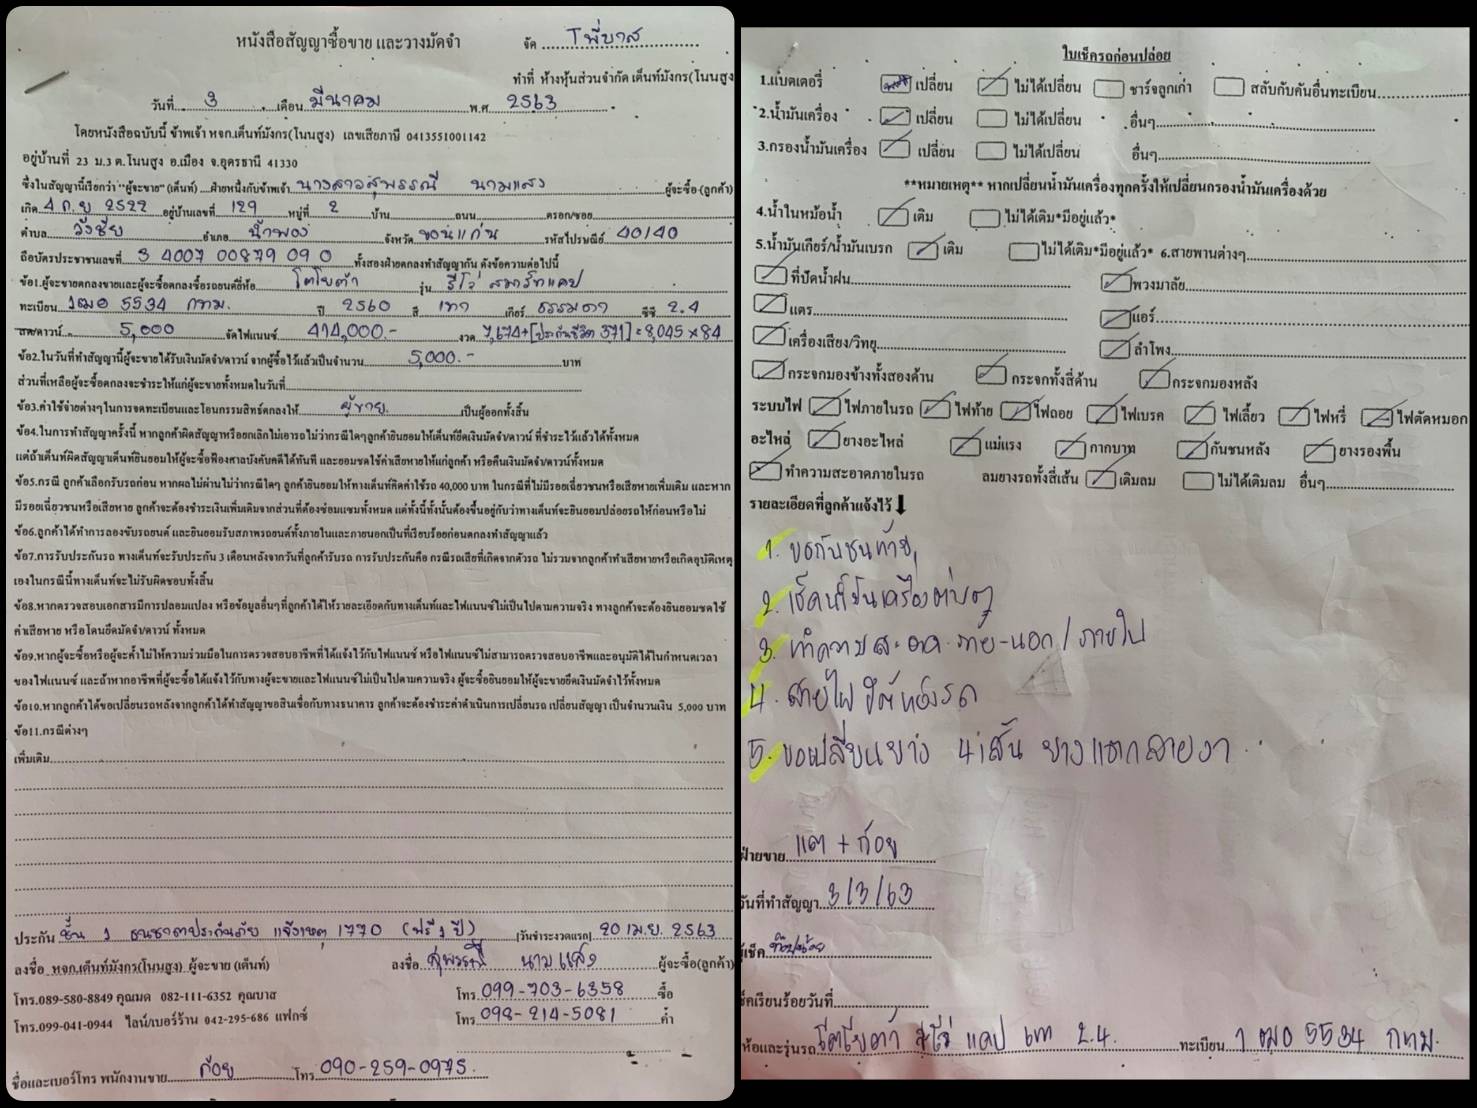 หนังสือสัญญาซื้อขาย และวางมัดจำ
จัด Tพี่บาส
ทำที่ ห้างหุ้นส่วนจำกัด เต็นท์มังกร(โนนสูง
วันที่ 3 เดือน มีนาคม พ.ศ 2563
โดยหนังสือฉบับนี้ ข้าพเจ้า หจก.เต็นท์มังกร(โนนสูง) เลขเสียภาษี 0413551001142
อยู่บ้านที่ 23 ม.3 ต.โนนสูง อ.เมือง จ.อุดรธานี 41330
ซึ่งในสัญญานี้เรียกว่า "ผู้จะขาย" (เต็นท์) ....ฝ่ายหนึ่งกับข้าพเจ้า นางสาวสุพรรณี นามแสง ผู้จะซื้อ (ลูกค้า)
เกิด 4 ก.ย 2522 อยู่บ้านเลขที่ 129 หมู่ที่ 2 บ้าน ถนน ตรอก/ซอย
ตำบล วังชัย อำเภอ น้ำพอง จังหวัด ขอนแก่น รหัสไปรษณีย์ 40140
ถือบัตรประชาชนเลขที่ 3 4007 00879 09 0 ทั้งสองฝ่ายตกลงทำสัญญากัน ดังข้อความต่อไปนี้
ข้อ1.ผู้จะขายตกลงขายและผู้จะซื้อตกลงซื้อรถยนต์ยี่ห้อ โตโยต้า รุ่น รีโว่ สมาร์ทแคป
ทะเบียน 1ฒอ 5534 กทม. ปี 2560 สี เทา เกียร์ ธรรมดา ซีซี 2.4
สด/ดาวน์ 5,000 จัดไฟแนนซ์ 414,000.- งวด 7,674+[ประกันชีวิต 371]=8,045 x 84
ข้อ2.ในวันที่ทำสัญญานี้ผู้จะขายได้รับเงินมัดจำ/ดาวน์ จากผู้ซื้อไว้แล้วเป็นจำนวน 5,000.- บาท
ส่วนที่เหลือผู้จะซื้อตกลงจะชำระให้แก่ผู้จะขายทั้งหมดในวันที่
ข้อ3.ค่าใช้จ่ายต่างๆในการจดทะเบียนและโอนกรรมสิทธิ์ตกลงให้ ผู้ขาย. เป็นผู้ออกทั้งสิ้น
ข้อ4.ในการทำสัญญาครั้งนี้ หากลูกค้าผิดสัญญาหรือยกเลิกไม่เอารถไม่ว่ากรณีใดๆลูกค้ายินยอมให้เต็นท์ยึดเงินมัดจำ/ดาวน์ ที่ชำระไว้แล้วได้ทั้งหมด
แต่ถ้าเต็นท์ผิดสัญญาเต็นท์ยินยอมให้ผู้จะซื้อฟ้องศาลบังคับคดีได้ทันที และยอมชดใช้ค่าเสียหายให้แก่ลูกค้า หรือคืนเงินมัดจำ/ดาวน์ทั้งหมด
ข้อ5.กรณี ลูกค้าเลือกรับรถก่อน หากผลไม่ผ่านไม่ว่ากรณีใดๆ ลูกค้ายินยอมให้ทางเต็นท์คิดค่าใช้รถ 40,000 บาท ในกรณีที่ไม่มีรอยเฉี่ยวชนหรือเสียหายเพิ่มเติม และหาก
มีรอยเฉี่ยวชนหรือเสียหาย ลูกค้าจะต้องชำระเงินเพิ่มเติมจากส่วนที่ต้องซ่อมแซมทั้งหมด แต่ทั้งนี้ทั้งนั้นต้องขึ้นอยู่กับว่าทางเต็นท์จะยินยอมปล่อยรถให้ก่อนหรือไม่
ข้อ6.ลูกค้าได้ทำการลองขับรถยนต์ และยินยอมรับสภาพรถยนต์ทั้งภายในและภายนอกเป็นที่เรียบร้อยก่อนตกลงทำสัญญาแล้ว
ข้อ7.การรับประกันรถ ทางเต็นท์จะรับประกัน 3 เดือนหลังจากวันที่ลูกค้ารับรถ การรับประกันคือ กรณีรถเสียที่เกิดจากตัวรถ ไม่รวมจากลูกค้าทำเสียหายหรือเกิดอุบัติเหตุ
เองในกรณีนี้ทางเต็นท์จะไม่รับผิดชอบทั้งสิ้น
ข้อ8.หากตรวจสอบเอกสารมีการปลอมแปลง หรือข้อมูลอื่นๆที่ลูกค้าได้ให้รายละเอียดกับทางเต็นท์และไฟแนนซ์ไม่เป็นไปตามความจริง ทางลูกค้าจะต้องยินยอมชดใช้
ค่าเสียหาย หรือโดนยึดมัดจำ/ดาวน์ ทั้งหมด
ข้อ9.หากผู้จะซื้อหรือผู้จะค้ำไม่ให้ความร่วมมือในการตรวจสอบอาชีพที่ได้แจ้งไว้กับไฟแนนซ์ หรือไฟแนนซ์ไม่สามารถตรวจสอบอาชีพและอนุมัติได้ในกำหนดเวลา
ของไฟแนนซ์ และถ้าหากอาชีพที่ผู้จะซื้อได้แจ้งไว้กับทางผู้จะขายและไฟแนนซ์ไม่เป็นไปตามความจริง ผู้จะซื้อยินยอมให้ผู้จะขายยึดเงินมัดจำไว้ทั้งหมด
ข้อ10.หากลูกค้าได้ขอเปลี่ยนรถหลังจากลูกค้าได้ทำสัญญาขอสินเชื่อกับทางธนาคาร ลูกค้าจะต้องชำระค่าดำเนินการเปลี่ยนรถ เปลี่ยนสัญญา เป็นจำนวนเงิน 5,000 บาท
ข้อ11.กรณีต่างๆ
เพิ่มเติม
ประกัน ชั้น 1 ธนชาตประกันภัย แจ้งเหตุ 1770 (ฟรี 1 ปี) [วันชำระงวดแรก] 20 เม.ย. 2563
ลงชื่อ หจก.เต็นท์มังกร(โนนสูง) ผู้จะขาย (เต็นท์) ลงชื่อ สุพรรณี นามแสง ผู้จะซื้อ(ลูกค้า)
โทร.089-580-8849 คุณมด 082-111-6352 คุณบาส โทร 099-703-6358 ซื้อ
โทร.099-041-0944 ไลน์/เบอร์ร้าน 042-295-686 แฟกซ์ โทร 098-214-5081 ค้ำ
ชื่อและเบอร์โทร พนักงานขาย ก้อย โทร 090-259-0975
ใบเช็ครถก่อนปล่อย
1.แบตเตอรี่ เปลี่ยน ไม่ได้เปลี่ยน ชาร์จลูกเก่า สลับกับคันอื่นทะเบียน
2.น้ำมันเครื่อง เปลี่ยน ไม่ได้เปลี่ยน อื่นๆ
3.กรองน้ำมันเครื่อง เปลี่ยน ไม่ได้เปลี่ยน อื่นๆ
**หมายเหตุ** หากเปลี่ยนน้ำมันเครื่องทุกครั้งให้เปลี่ยนกรองน้ำมันเครื่องด้วย
4.น้ำในหม้อน้ำ เติม ไม่ได้เติม*มีอยู่แล้ว*
5.น้ำมันเกียร์/น้ำมันเบรก เติม ไม่ได้เติม*มีอยู่แล้ว* 6.สายพานต่างๆ
ที่ปัดน้ำฝน พวงมาลัย
แตร แอร์
เครื่องเสียง/วิทยุ ลำโพง
กระจกมองข้างทั้งสองด้าน กระจกทั้งสี่ด้าน กระจกมองหลัง
ระบบไฟ ไฟภายในรถ ไฟท้าย ไฟถอย ไฟเบรค ไฟเลี้ยว ไฟหรี่ ไฟตัดหมอก
อะไหล่ ยางอะไหล่ แม่แรง กากบาท กันชนหลัง ยางรองพื้น
ทำความสะอาดภายในรถ ลมยางรถทั้งสี่เส้น เติมลม ไม่ได้เติมลม อื่นๆ
รายละเอียดที่ลูกค้าแจ้งไว้
1. ขอกันชนท้าย
2. เช็คน้ำมันเครื่องต่างๆ
3. ทำความสะอาด ภาย-นอก/ภายใน
4. สายไฟ ใต้ท้องรถ
5. ขอเปลี่ยนยาง 4 เส้น ยางแตกลายงา
ฝ่ายขาย แต + ก้อย
วันที่ทำสัญญา 3/3/63
ผู้เช็ค
ช็คเรียบร้อยวันที่
ห้อและรุ่นรถ โตโยต้า รีโว่ แคป เทา 2.4 ทะเบียน 1 ฒอ 5534 กทม.